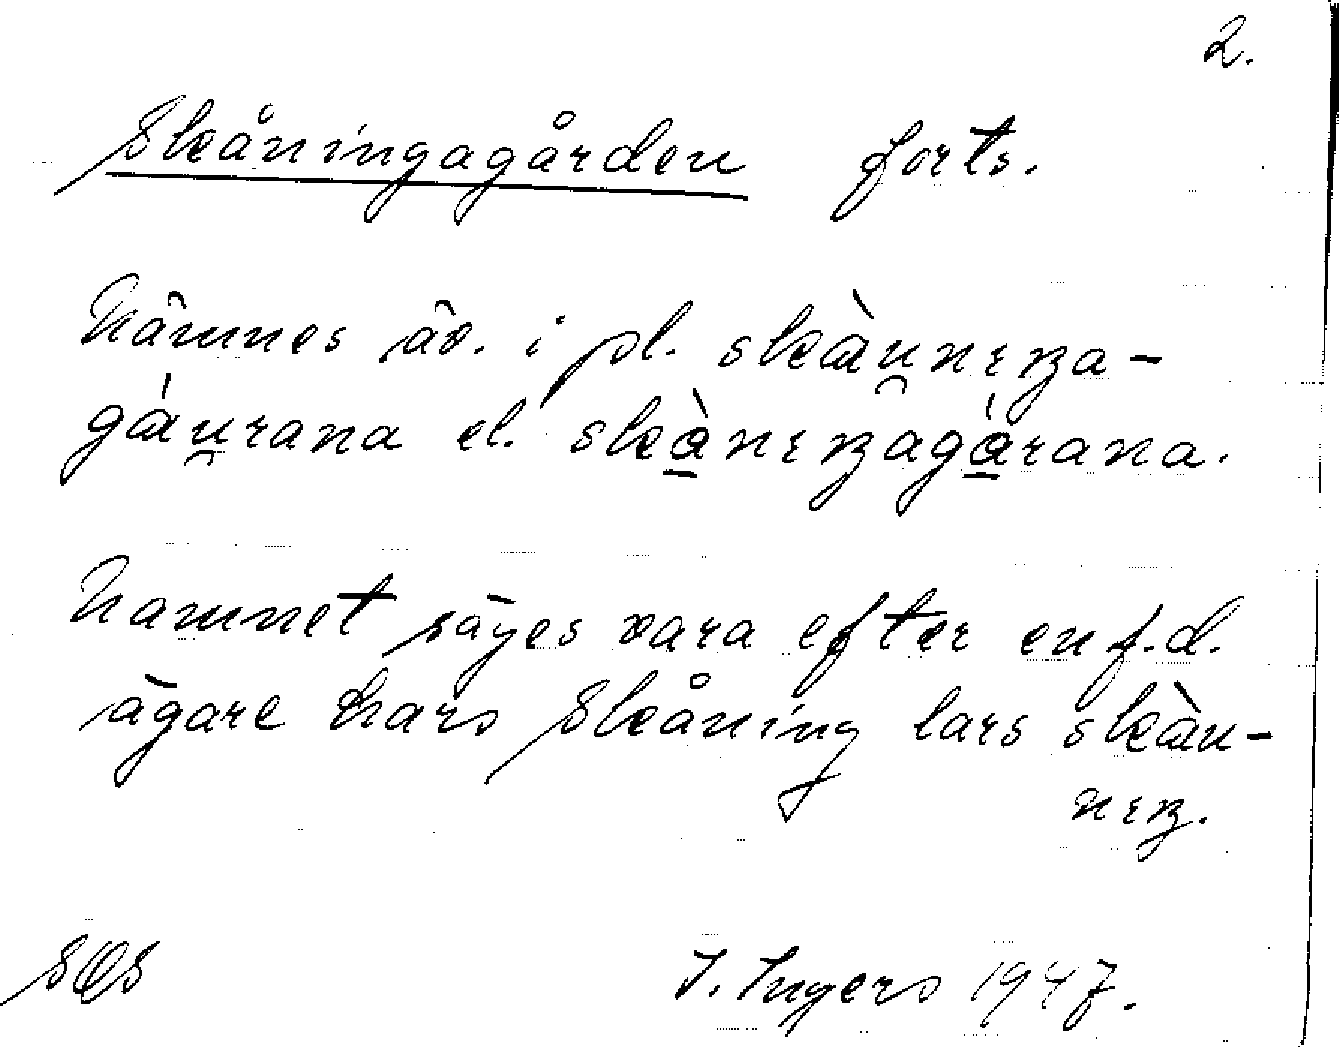 2.
Skåningagården forts.
Nämnes äv. i pl. skàu̯nɪŋa-
gáu̯rana el. skànɪŋagárana.
Namnet säges vara efter en f.d.
ägare Lars Skåning lars skàu-
nɪŋ.
I. Ingers 1947.